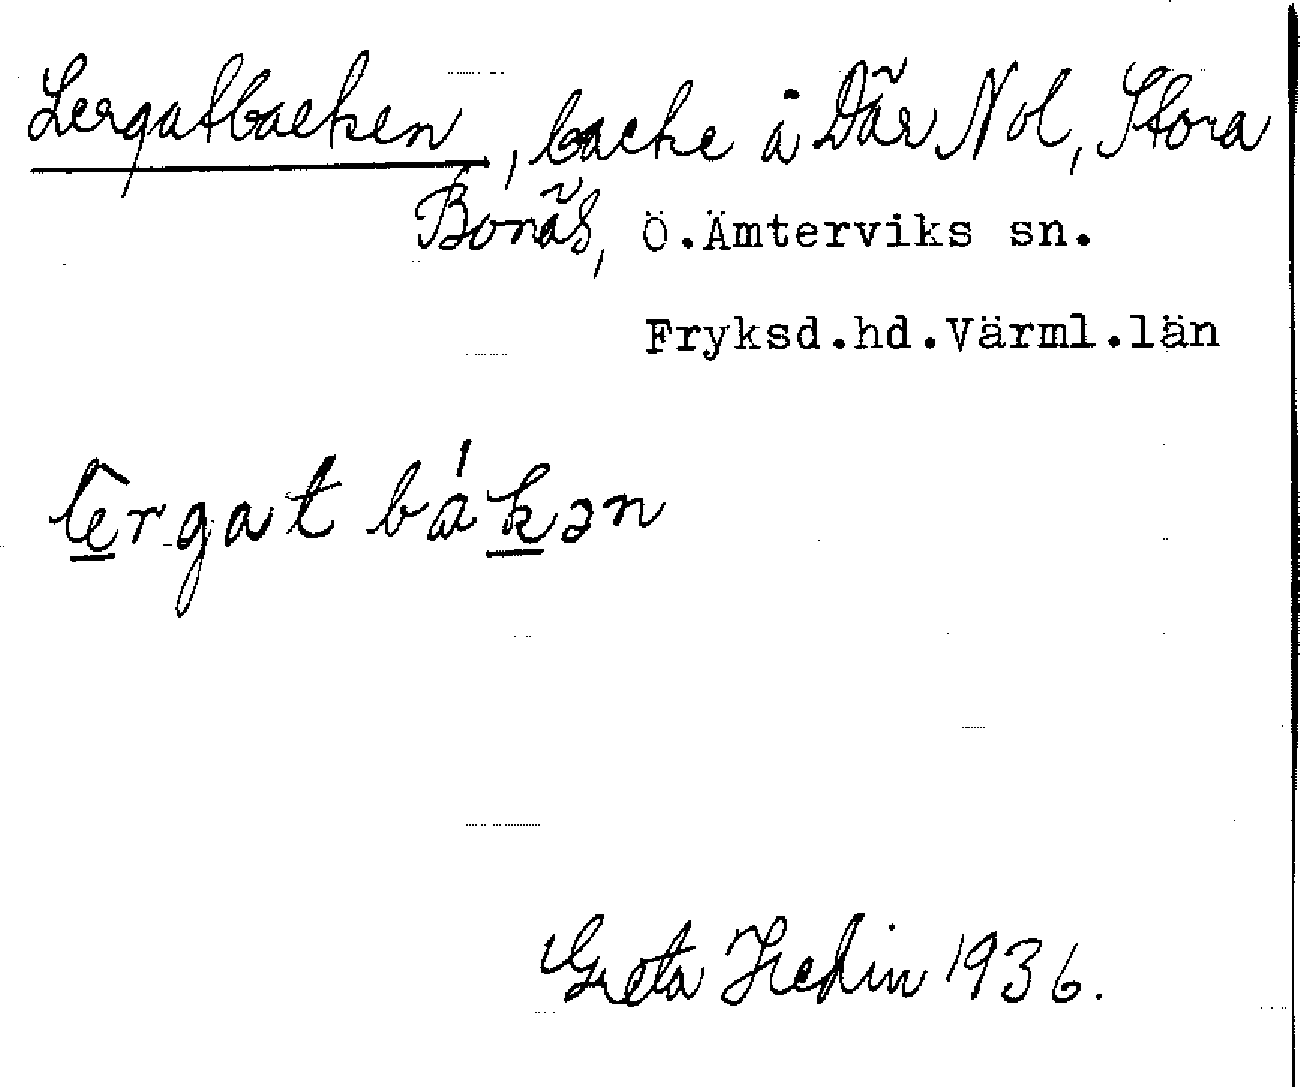 Lergatbacken, backe å Där Nol, Stora
Bonäs, Ö.Ämterviks sn.
Fryksd.hd.Värml.län
lergat bákən
Greta Hedin 1936.